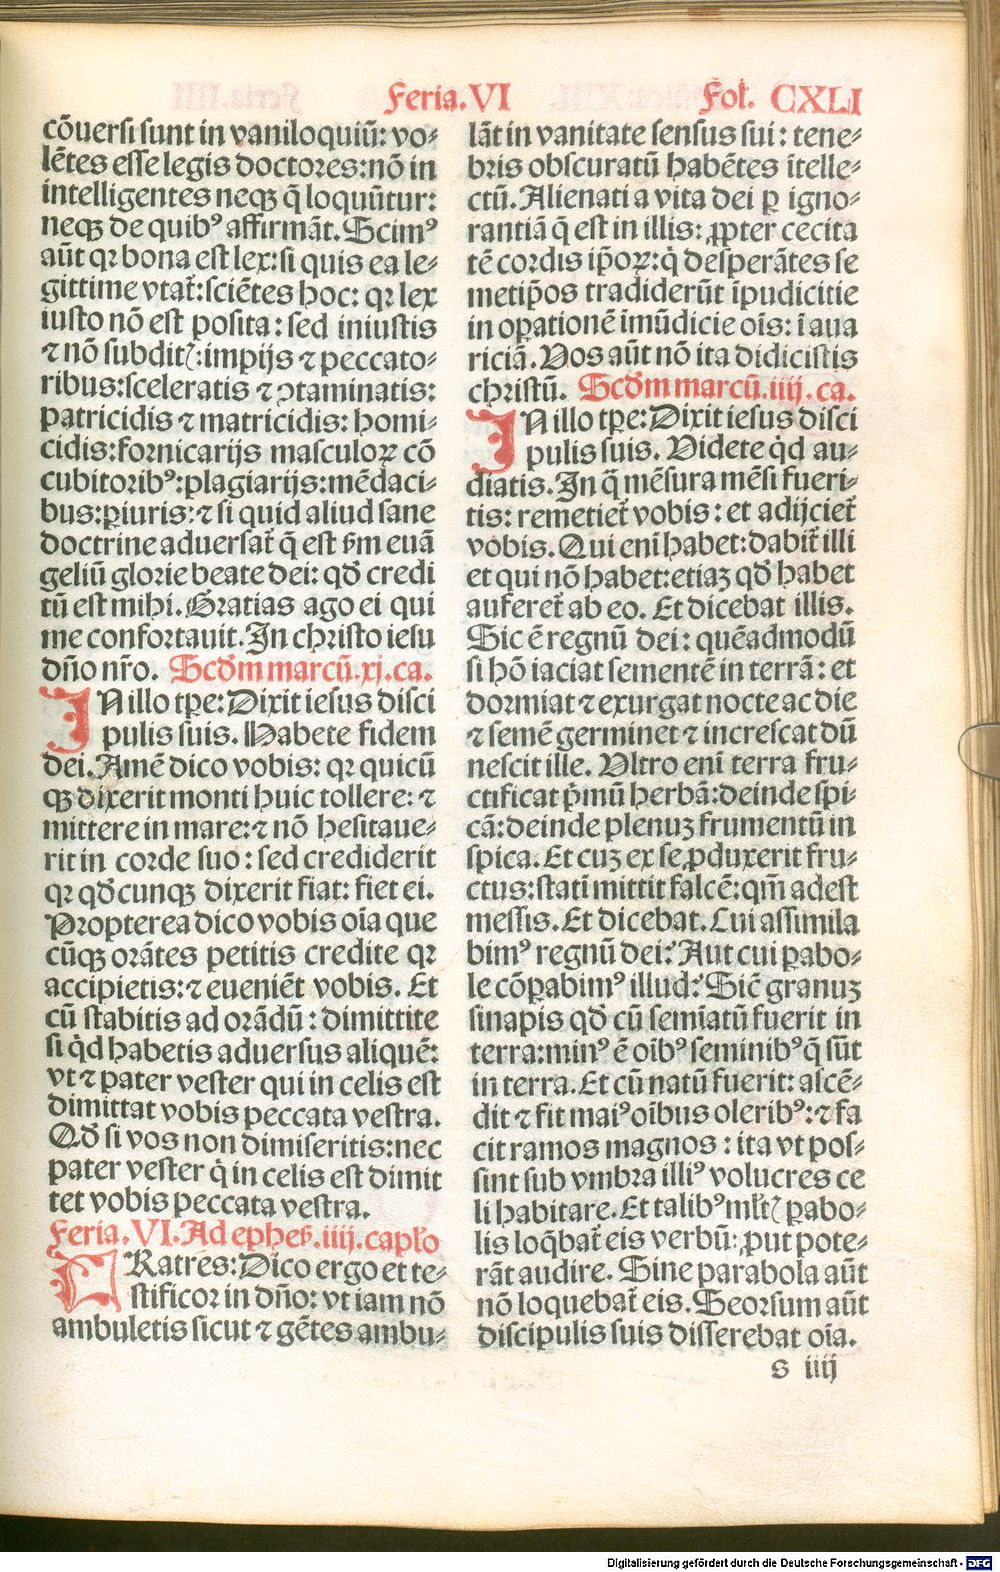 Feria.VI Fol. CXLI
cōuersi sunt in vaniloquiū: vo⸗
lētes esse legis doctores: nō in
intelligentes neqꝫ q̄ loquūtur:
neqꝫ de quibꝰ affirmāt. Scimꝰ
aūt qꝛ bona est lex: si quis ea le⸗
gittime vtat᷑: sciētes hoc: qꝛ lex
iusto nō est posita: sed iniustis
⁊ nō subdit᷑: impijs ⁊ peccato⸗
ribus: sceleratis ⁊ ꝯtaminatis:
patricidis ⁊ matricidis: homi⸗
cidis: fornicarijs masculoꝝ cō
cubitoribꝰ: plagiarijs: mēdaci⸗
bus: ꝑiuris: ⁊ si quid aliud sane
doctrine aduersat᷑ q̄ est ẜm euā
geliū glorie beate dei: qđ credi
tū est mihi. Gratias ago ei qui
me confortauit. In christo iesu
dño nr̄o. Scđm marcū.xj.ca.
IN illo tꝑe: Dixit iesus disci
pulis suis. Habete fidem
dei. Amē dico vobis: qꝛ quicū
qꝫ dixerit monti huic tollere: ⁊
mittere in mare: ⁊ nō hesitaue⸗
rit in corde suo: sed crediderit
qꝛ qđcunqꝫ dixerit fiat: fiet ei.
Propterea dico vobis oīa que
cūqꝫ orātes petitis credite qꝛ
accipietis: ⁊ eueniēt vobis. Et
cū stabitis ad orādū: dimittite
si qd̛ habetis aduersus aliquē:
vt ⁊ pater vester qui in celis est
dimittat vobis peccata vestra.
Qđ si vos non dimiseritis: nec
pater vester q̇ in celis est dimit
tet vobis peccata vestra.
Feria.VI. Ad epheẜ.iiij.capło
FRatres: Dico ergo et te⸗
stificor in dño: vt iam nō
ambuletis sicut ⁊ gētes ambu⸗
lāt in vanitate sensus sui: tene⸗
bris obscuratū habētes ītelle⸗
ctū. Alienati a vita dei ꝑ igno⸗
rantiā q̄ est in illis: ꝓpter cecita
tē cordis ip̄oꝝ: q̇ desperātes se
metip̄os tradiderūt īpudicitie
in oꝑationē īmūdicie oīs: ī aua
riciā. Vos aūt nō ita didicistis
christū. Scđm marcū.iiij.ca.
IN illo tꝑe: Dixit iesus disci
pulis suis. Videte qd̛ au⸗
diatis. In q̄ mēsura mēsi fueri⸗
tis: remetiet᷑ vobis: et adijciet᷑
vobis. Qui enī habet: dabit᷑ illi
et qui nō habet: etiaꝫ qđ habet
auferet᷑ ab eo. Et dicebat illis.
Sic ē regnū dei: quēadmodū
si hō iaciat sementē in terrā: et
dormiat ⁊ exurgat nocte ac die
⁊ semē germinet ⁊ increscat dū
nescit ille. Vltro enī terra fru⸗
ctificat p̄mū herbā: deinde spi⸗
cā: deinde plenuꝫ frumentū in
spica. Et cuꝫ ex se ꝓduxerit fru⸗
ctus: statī mittit falcē: qm̄ adest
messis. Et dicebat. Cui assimila
bimꝰ regnū dei? Aut cui ꝑabo⸗
le cōꝑabimꝰ illud? Sic̄ granuꝫ
sinapis qđ cū semīatū fuerit in
terra: minꝰ ē oībꝰ seminibꝰ q̄ sūt
in terra. Et cū natū fuerit: ascē⸗
dit ⁊ fit maiꝰ oībus oleribꝰ: ⁊ fa
cit ramos magnos: ita vt pos⸗
sint sub vmbra illiꝰ volucres ce
li habitare. Et talibꝰ mlt᷑ ꝑabo⸗
lis loq̄bat᷑ eis verbū: ꝓut pote⸗
rāt audire. Sine parabola aūt
nō loquebat᷑ eis. Seorsum aūt
discipulis suis disserebat oīa.
s iiij
Digitalisierung gefördert durch die Deutsche Forschungsgemeinschaft - DFG